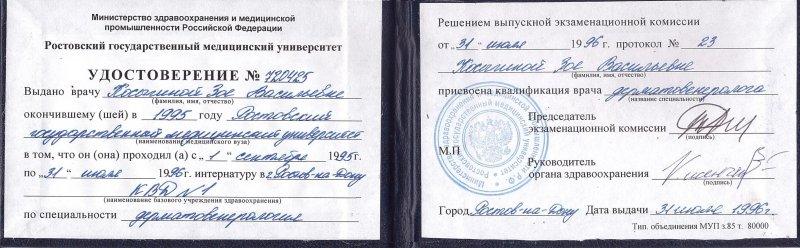 Министерство здравоохранения и медицинской
промышленности Российской Федерации
Ростовский государственный медицинский университет
УДОСТОВЕРЕНИЕ № 720425
Выдано врачу Косыгиной Зое Васильевне
(фамилия, имя, отчество)
окончившему (шей) в 1995 году Ростовский
государственный медицинский университет
(наименование медицинского вуза)
в том, что он (она) проходил (а) с „ 1 “ сентября 1995г.
по „ 31 “ июля 1996г. интернатуру в г. Ростов-на-Дону
КВД №1
(наименование базового учреждения здравоохранения)
по специальности дерматовенерология
Решением выпускной экзаменационной комиссии
от „ 31 “ июля 1996 г. протокол № 23
Косыгиной Зое Васильевне
(фамилия, имя, отчество)
присвоена квалификация врача дерматовенеролога
(название специальности)
Председатель
экзаменационной комиссии
(подпись)
М.П.
Руководитель
органа здравоохранения
(подпись)
Город Ростов-на-Дону Дата выдачи 31 июля 1996г.
Тип. объединения МУП з.85 т. 80000